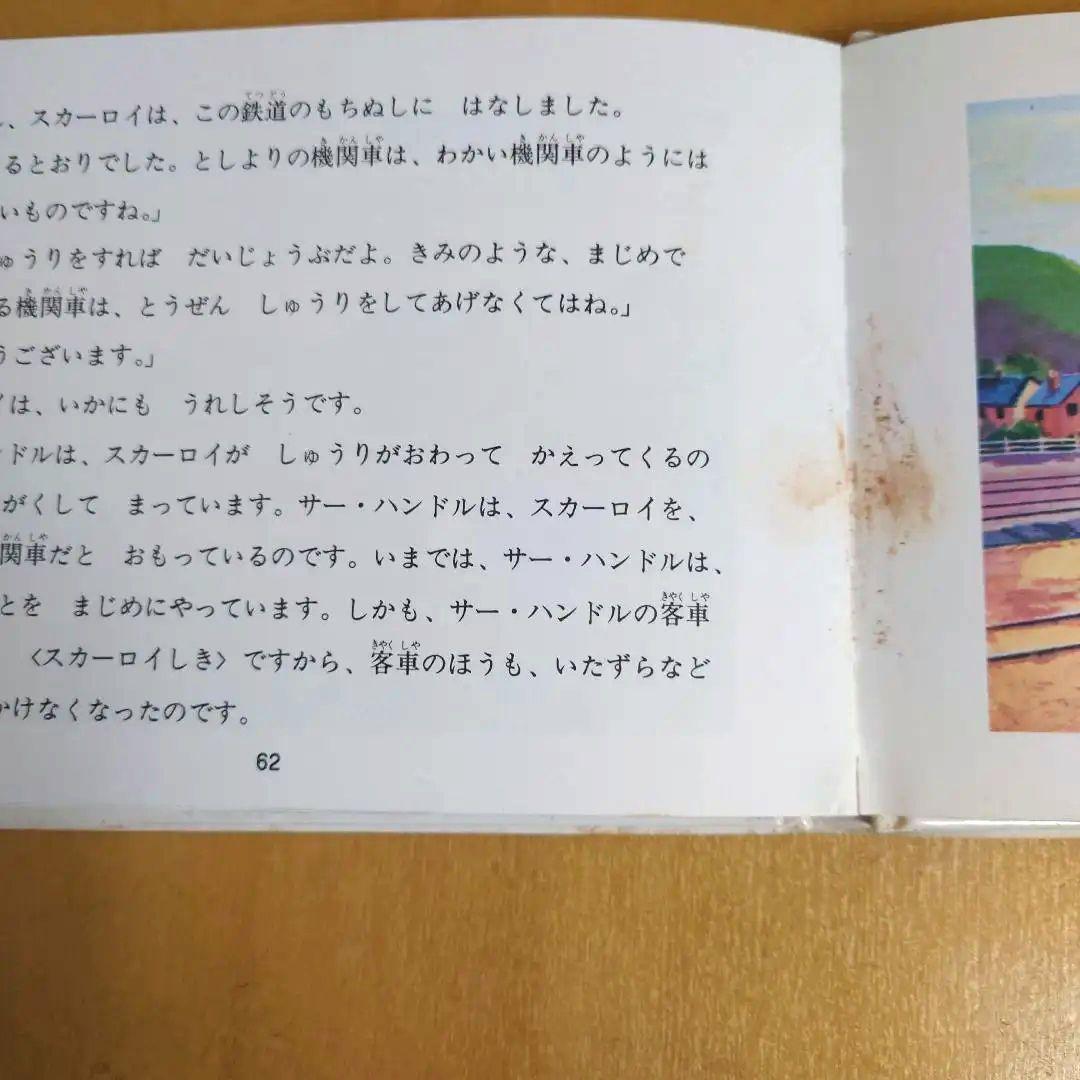 、スカーロイは、この鉄道のもちぬしに　はなしました。
るとおりでした。としよりの機関車は、わかい機関車のようには
いものですね。」
ゅうりをすれば　だいじょうぶだよ。きみのような、まじめで
る機関車は、とうぜん　しゅうりをしてあげなくてはね。」
うございます。」
イは、いかにも　うれしそうです。
ンドルは、スカーロイが　しゅうりがおわって　かえってくるの
がくして　まっています。サー・ハンドルは、スカーロイを、
関車だと　おもっているのです。いまでは、サー・ハンドルは、
とを　まじめにやっています。しかも、サー・ハンドルの客車
〈スカーロイしき〉ですから、客車のほうも、いたずらなど
かけなくなったのです。
62